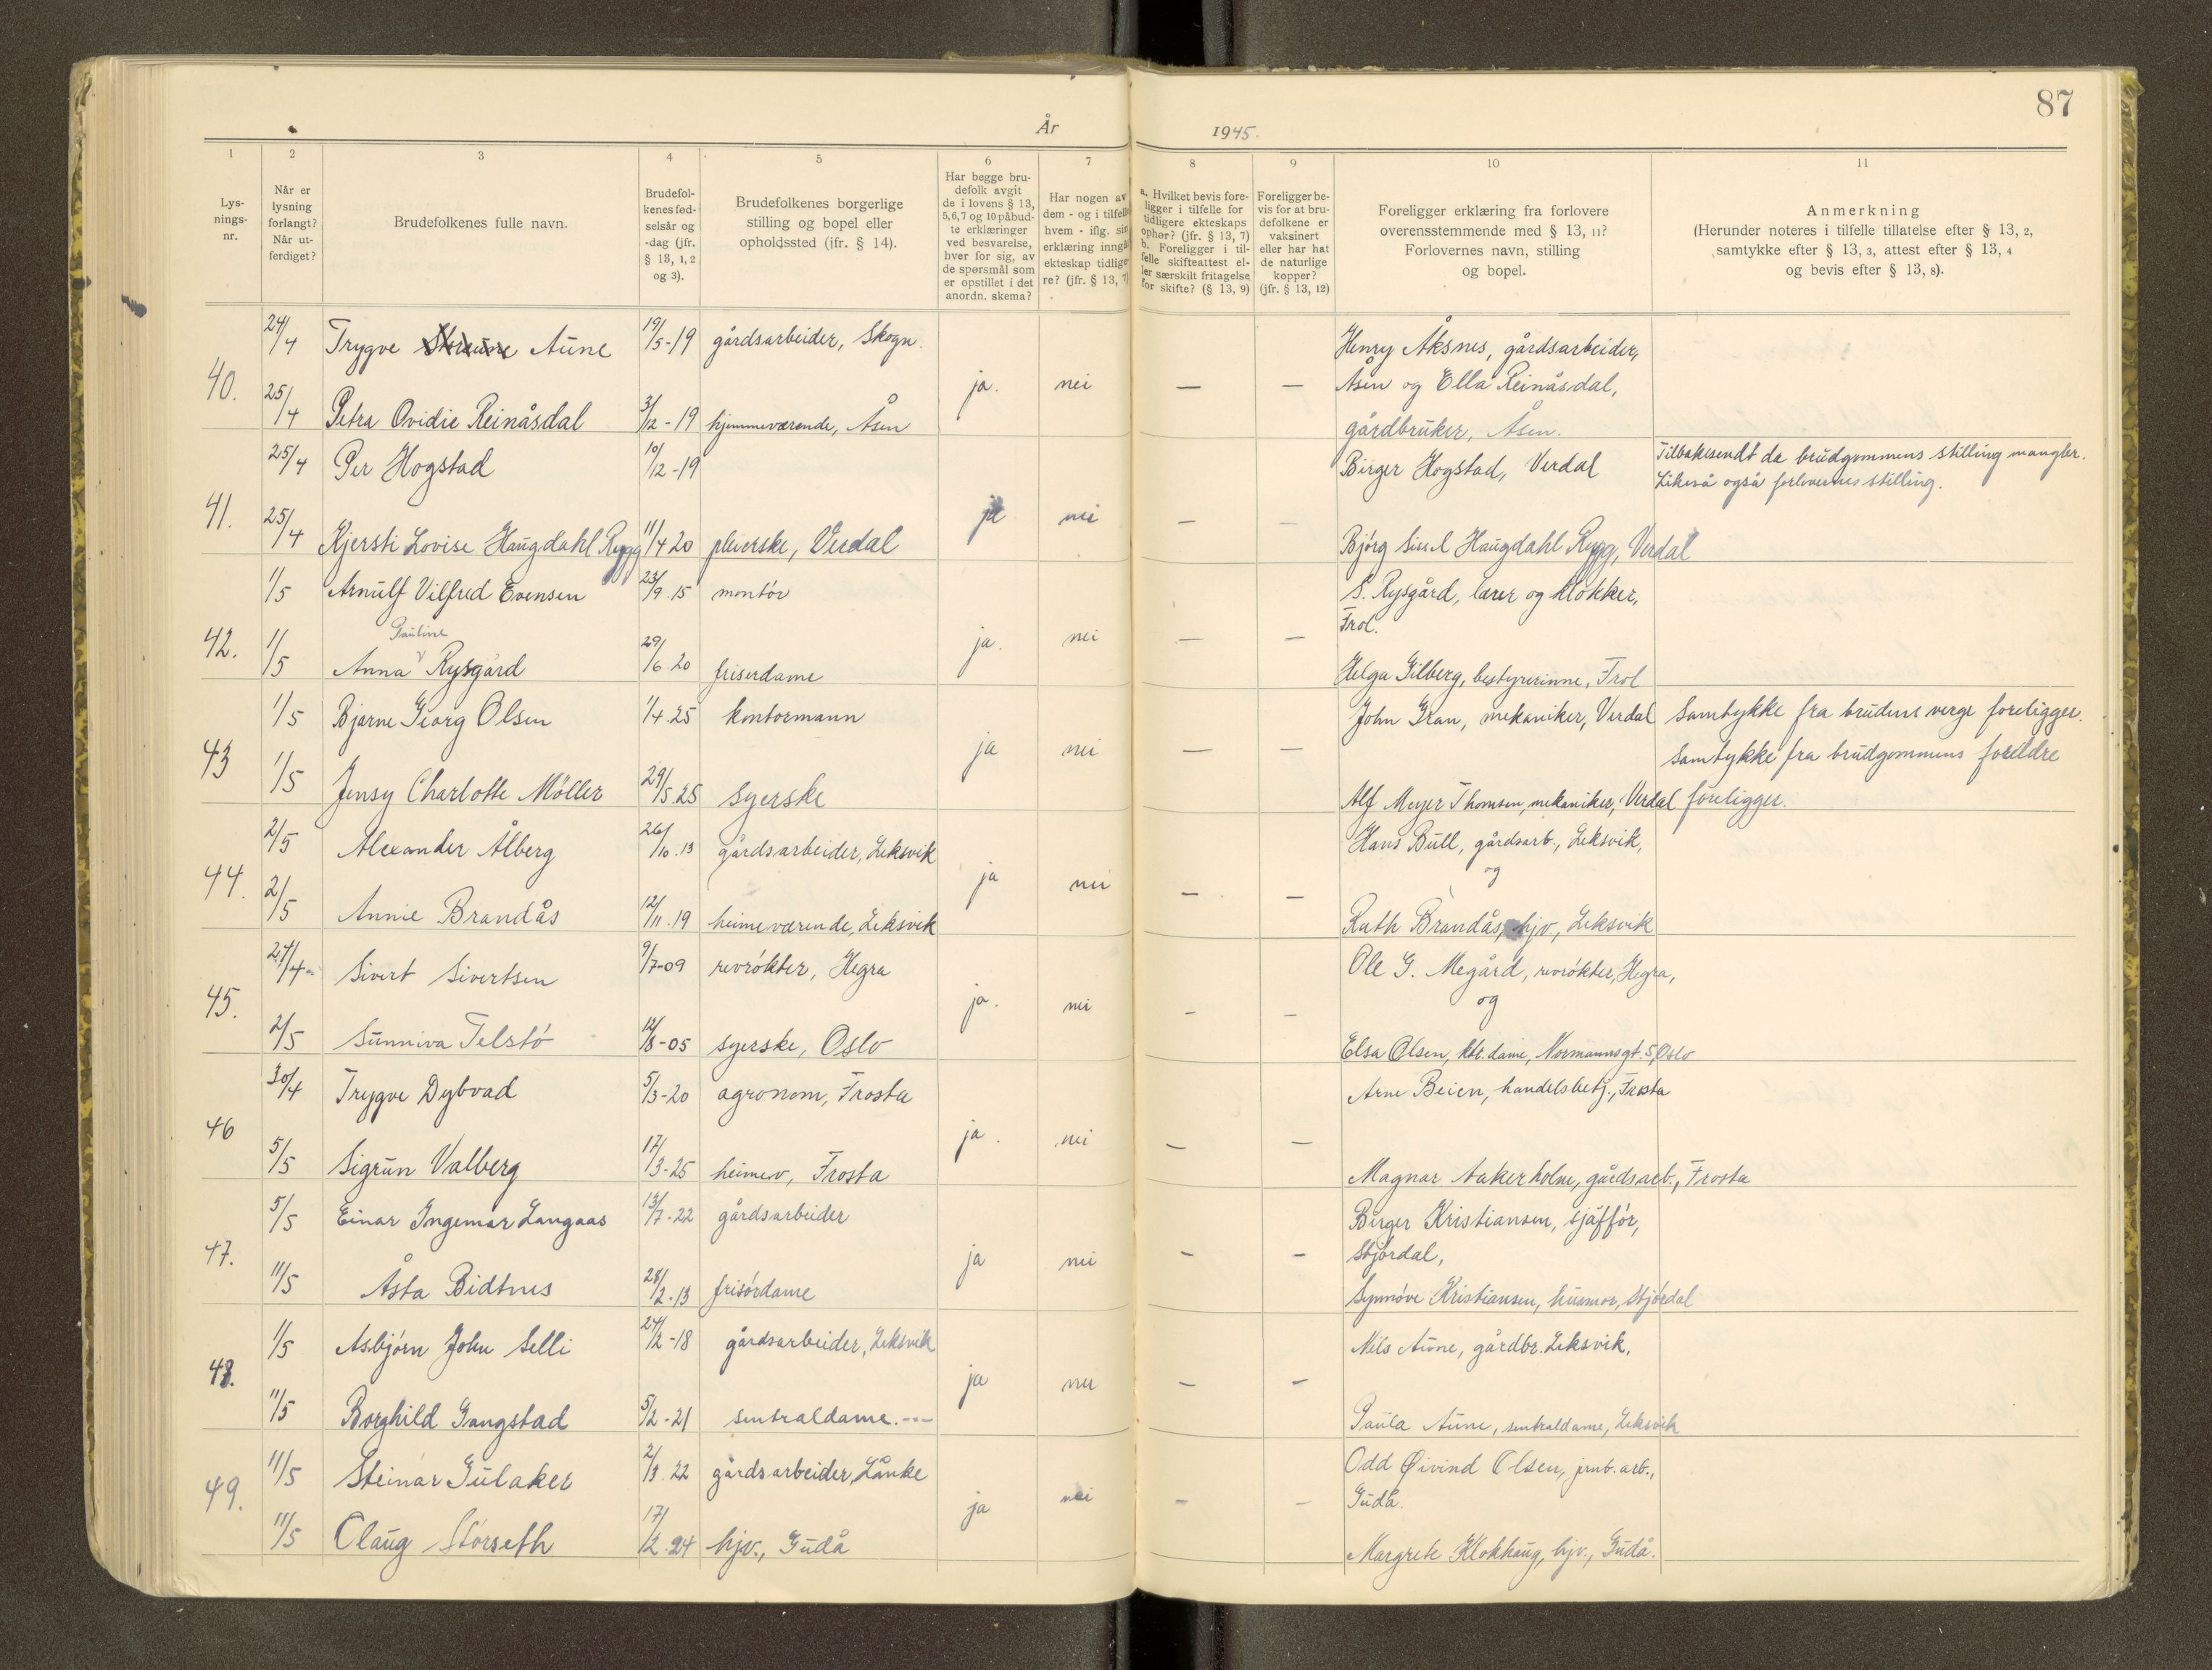 87
År 1945.
1 2 3 4 5 6 7 8 9 10 11
Lysnings-nr.
Når er lysning forlangt? Når utferdiget?
Brudefolkenes fulle navn.
Brudefolkenes fødselsår og -dag (jfr. § 13, 1, 2 og 3).
Brudefolkenes borgerlige stilling og bopel eller opholdssted (ifr. § 14).
Har begge brudefolk avgit de i lovens § 13, 5,6,7 og 10 påbudte erklæringer ved besvarelse, hver for sig, av de spørsmål som er opstillet i det anordn. skema?
Har nogen av dem - og i tilfelle hvem - iflg. sin erklæring inngått ekteskap tidligere? (jfr. § 13, 7)
a. Hvilket bevis foreligger i tilfelle for tidligere ekteskaps ophør? (jfr. § 13, 7) b. Foreligger i tilfelle skifteattest eller særskilt fritagelse for skifte? (§ 13, 9)
Foreligger bevis for at brudefolkene er vaksinert eller har hat de naturlige kopper? (jfr. § 13, 12)
Foreligger erklæring fra forlovere overensstemmende med § 13, 11? Forlovernes navn, stilling og bopel.
Anmerkning
(Herunder noteres i tilfelle tillatelse efter § 13, 2, samtykke efter § 13, 3, attest efter § 13, 4 og bevis efter § 13, 8).
24/4 Trygve Aune 19/5-19 gårdsarbeider, Skogn. Henry Åksnes, gårdsarbeider,
40. ja. nei — — Åsen og Ella Reinåsdal,
25/4 Petra Ovidie Reinåsdal 3/12-19 hjemmeværende, Åsen gårdbruker, Åsen.
25/4 Per Hogstad 10/12-19 Birger Hogstad, Verdal Tilbakesendt da brudgommens stilling mangler.
Likeså også forlovernes stilling.
41. ja nei — —
25/4 Kjersti Lovise Haugdahl Rygg 11/4 20 pleierske, Verdal Bjørg Sissel Haugdahl Rygg, Verdal
1/5 Arnulf Vilfred Evensen 23/9.15 montør S. Rysgård, lærer og klokker,
Frol.
Pauline
42. ja. nei — —
1/5 Anna v Rysgård 29/6.20 friserdame Helga Gilberg, bestyrerinne, Frol
1/5 Bjarne Georg Olsen 1/4.25 kontormann John Gran, mekaniker, Verdal Samtykke fra brudens verge foreligger.
43 ja nei — — Samtykke fra brudgommens foreldre
1/5 Jensy Charlotte Möller 29/5.25 syerske Alf Meyer Thomsen, mekaniker, Verdal foreligger.
2/5 Alexander Ålberg 26/10.13 gårdsarbeider, Leksvik Hans Bull, gårdsarb., Leksvik,
44. ja nei — — og
2/5 Annie Brandås 12/11.19 heimeværende, Leksvik Ruth Brandås, hjv., Leksvik
27/4- Sivert Sivertsen 9/7-09 revrøkter, Hegra Ole G. Megård, revrøkter, Hegra,
45. ja. nei — — og
2/5 Sunniva Telstø 12/8-05 syerske, Oslo Elsa Olsen, ktr. dame, Normannsgt. 5, Oslo
30/4 Trygve Dybvad 5/3-20 agronom, Frosta Arne Beien, handelsbetj., Frosta
46 ja. nei — —
5/5 Sigrun Valberg 17/3-25 heimev, Frosta Magnar Aakerholm, gårdsarb., Frosta
5/5 Einar Ingemar Langaas 13/7-22 gårdsarbeider Birger Kristiansen, sjåffør,
47. ja nei — — Stjørdal,
11/5 Åsta Bidtnes 28/2.13 frisørdame Synnøve Kristiansen, husmor, Stjørdal
1/5 Asbjørn John Selli 24/2-18 gårdsarbeider, Leksvik Nils Aune, gårdbr. Leksvik,
48. ja nei — —
11/5 Borghild Gangstad 5/2-21 sentraldame. --- Paula Aune, sentraldame, Leksvik
11/5 Steinar Gulaker 2/3.22 gårdsarbeider, Lånke Odd Øivind Olsen, jrnb. arb.,
49. ja nei — — Gudå.
11/5 Olaug Størseth 17/12.24 hjv., Gudå Margrete Klokhaug, hjv., Gudå.